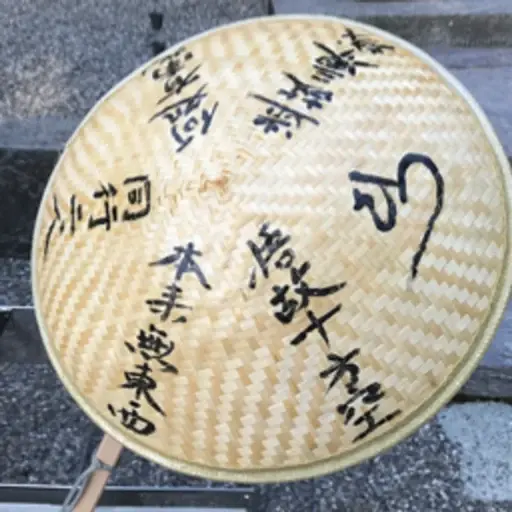 迷故三界城
悟故十方空
本来無東西
同行二人
何処有南北